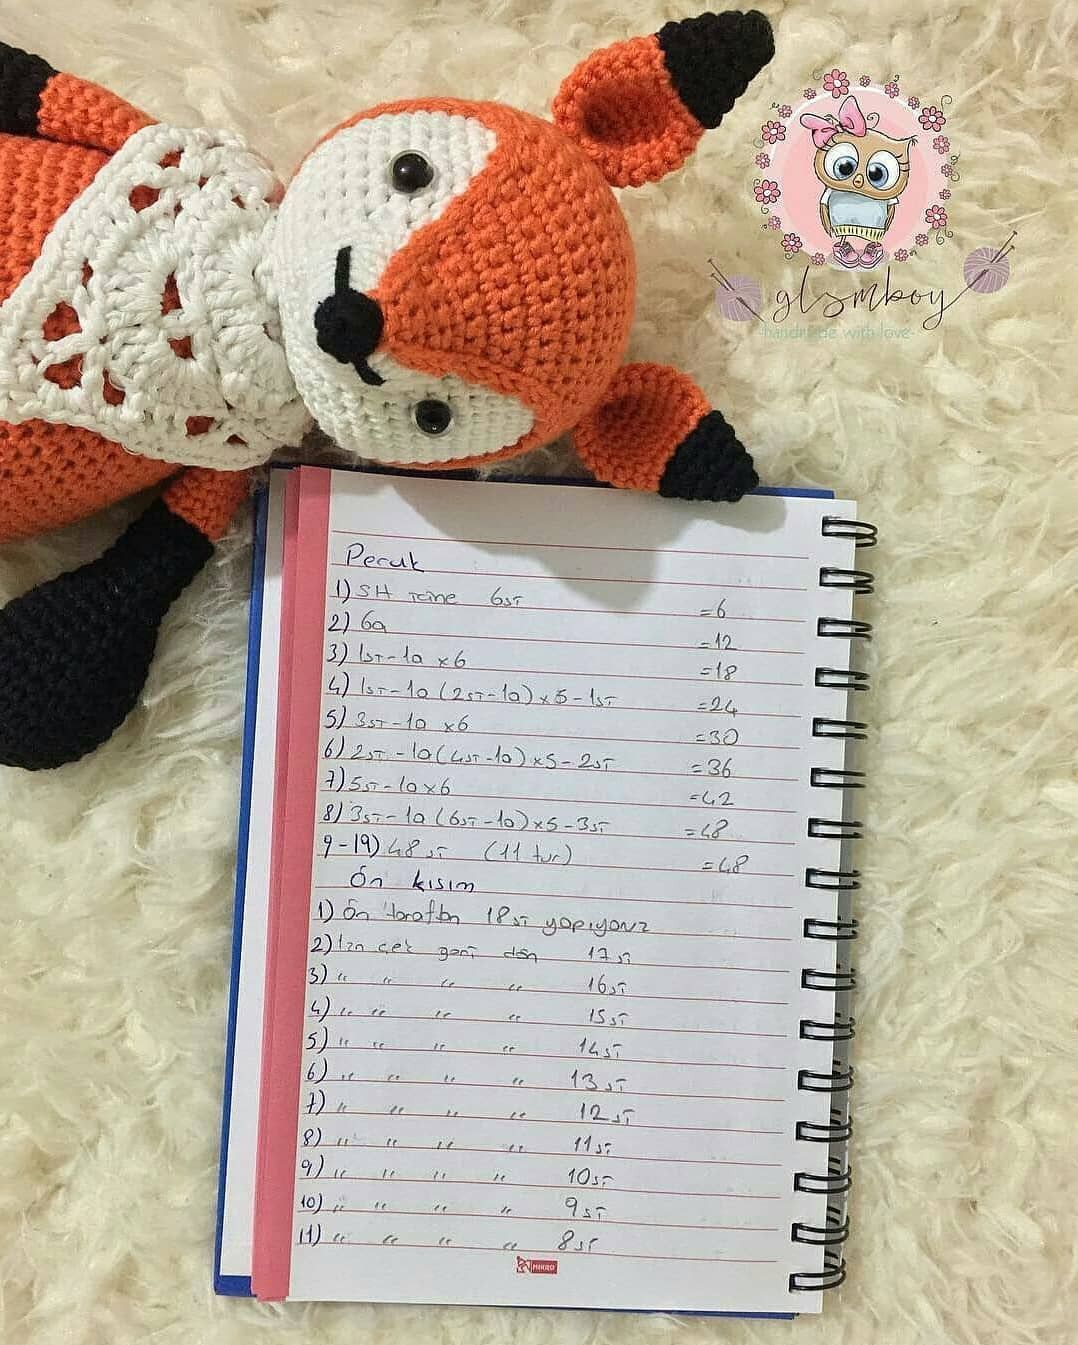 glsmboy
-handmade with love-
Peruk
1) SH içine 6sı =6
2) 6a =12
3) 1sı-1a x6 =18
4) 1sı-1a (2sı-1a) x5-1sı =24
5) 3sı-1a x6 =30
6) 2sı-1a (4sı-1a) x5-2sı =36
7) 5sı-1a x6 =42
8) 3sı-1a (6sı-1a) x5-3sı =48
9-19) 48sı (11 tur) =48
Ön kısım
1) Ön taraftan 18sı yapıyoruz
2) 1zn çek geri dön 17sı
3) " " " " 16sı
4) " " " " 15sı
5) " " " " 14sı
6) " " " " 13sı
7) " " " " 12sı
8) " " " " 11sı
9) " " " " 10sı
10) " " " " 9sı
11) " " " " 8sı
MIKRO